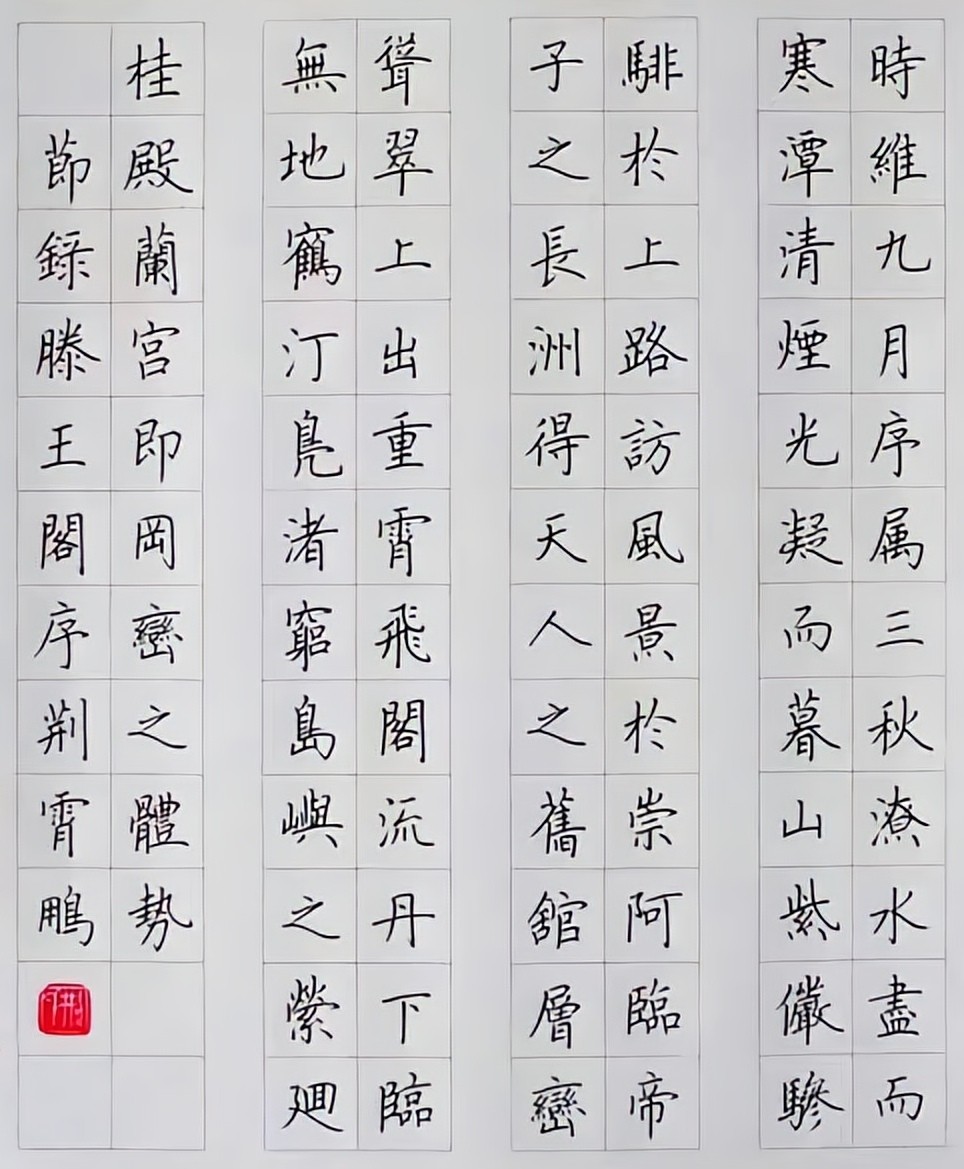 時維九月序属三秋潦水盡而
寒潭清煙光凝而暮山紫儼驂
騑於上路訪風景於崇阿臨帝
子之長洲得天人之舊舘層巒
聳翠上出重霄飛閣流丹下臨
無地鶴汀鳧渚窮島嶼之縈迴
桂殿蘭宮即岡巒之體勢
節錄滕王閣序荆霄鵬